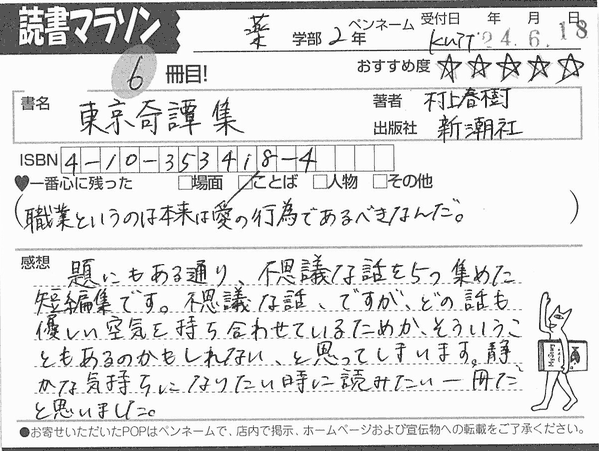 読書マラソン
薬 学部 2年 ペンネーム KUTT 受付日 年 月 日 24.6.18
6 冊目! おすすめ度 ☆☆☆☆☆
書名 東京奇譚集 著者 村上春樹
出版社 新潮社
ISBN 4-10-353418-4
♥一番心に残った □場面 □ことば □人物 □その他
(職業というのは本来は愛の行為であるべきなんだ。)
感想 題にもある通り、不思議な話を5つ集めた
短編集です。不思議な話、ですが、どの話も
優しい空気を持ち合わせているためか、そういうこ
ともあるのかもしれない、と思ってしまいます。静
かな気持ちになりたい時に読みたい一冊だ
と思いました。
●お寄せいただいたPOPはペンネームで、店内で掲示、ホームページおよび宣伝物への転載をご了承ください。